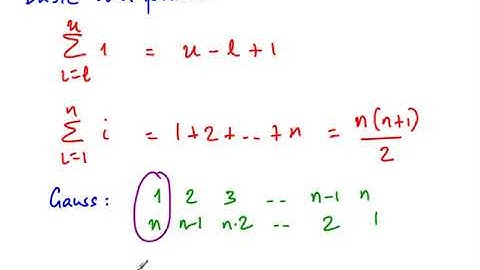 Basic
∑_{i=l}^{u} 1 = u - l + 1
∑_{i=1}^{n} i = 1+2+..+n = n(n+1)/2
Gauss: 1 2 3 .. n-1 n
n n-1 n-2 .. 2 1